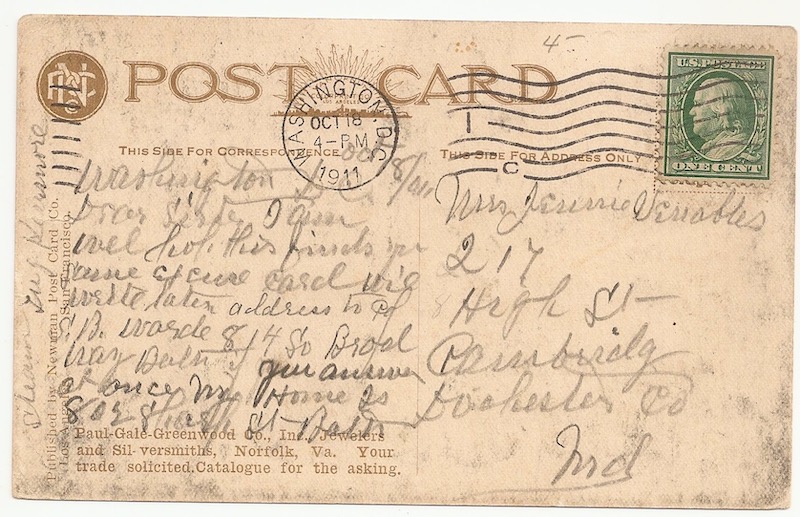 4
POST CARD
LOS ANGELES
WASHINGTON, D.C.
OCT 18
4-PM
1911
1
C
U.S. POSTAGE
ONE CENT
THIS SIDE FOR CORRESPONDENCE
THIS SIDE FOR ADDRESS ONLY
Washington D.C. Oct 18/011
Dear Sister I am
wel hop this finds you
same excuse card wil
write later address to C of
S.B. Warde 814 So Brod
way Balto if you answer
at once my Home Is
802 St Balto
Steamer Tug
Published by Newman Post Card Co.
Los Angeles San Francisco
Paul-Gale-Greenwood Co., Inc. Jewelers
and Sil-versmiths, Norfolk, Va. Your
trade solicited.Catalogue for the asking.
Mrs Jennie Venables
217
High St
Cambridg
Dochester Co
Md